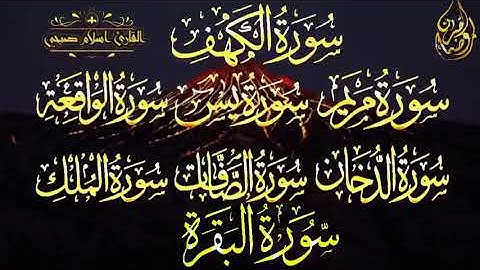 القارئ اسلام صبحي
سُورَةُ الكَهْفِ
سُورَة مَريَم سُورَة يس سُورَةُ الْوَاقِعَةِ
سُورَةُ الدُّخَان سُورَةُ الصَّافَّات سُورَةُ الْمُلْكِ
سُورَةُ البَقَرَة